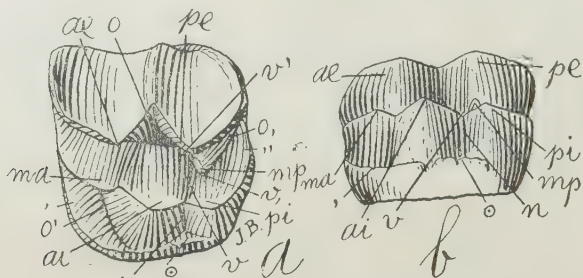 ae o pe
v'
o,
"
mp
v,
pi
ma
'
o'
ai
J.B.
v
a
ae pe
pi
mp
ma
'
ai v o n
b